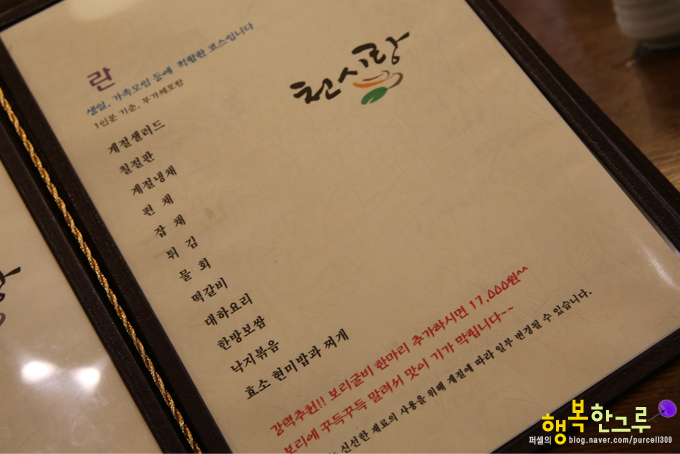 란
천시랑
생일, 가족모임 등에 적합한 코스입니다
1인분 기준, 부가세포함
계절샐러드
칠절판
계절냉채
편 채
잡 채
튀 김
물 회
떡갈비
대하요리
한방보쌈
낙지볶음
효소 현미밥과 찌개
강력추천!! 보리굴비 한마리 추가하시면 17,000원^^
보리에 꾸득꾸득 말려서 맛이 기가 막힙니다~~
신선한 재료의 사용을 위해 계절에 따라 일부 변경될 수 있습니다.
행복한그루
퍼셀의 blog.naver.com/purcell309